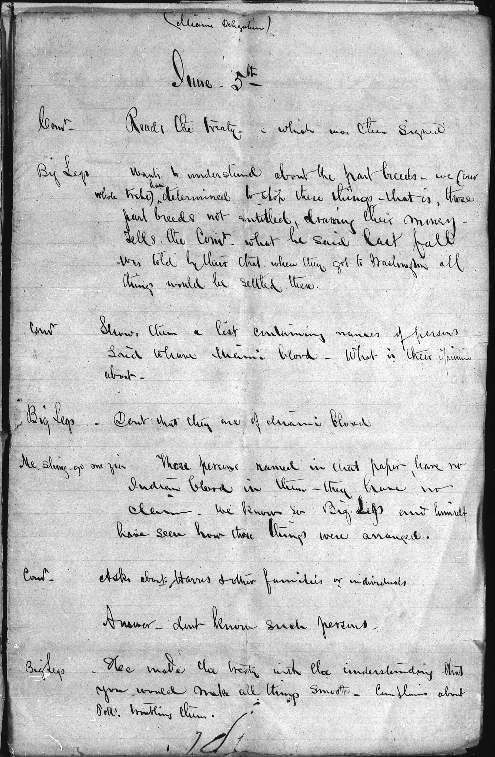 (Miami Delegation)
June 5th
Comr - Reads the treaty - which was then signed
Big Legs wants to understand about the part breeds - we (our
whole tribe) have determined to stop these things - that is, those
part breeds not entitled, drawing their money -
Tells the Comr. what he said last fall
was told by them that when they got to Washington all
things would be settled then.
Comr Shows them a list containing names of persons
said to have Miami blood - What is their opinion
about -
Big Legs - Dont that they are of Miami blood
Me, shing, go, me, zia Those persons named in that paper, have no
Indian blood in them - they have no
claim - we know so Big Legs and himself
have seen how these things were arranged.
Comr - Asks about Harris & other families or individuals
Answer - dont know such persons -
Big Legs - He made the treaty with the understanding that
you would make all things smooth - Complains about
troubling them.